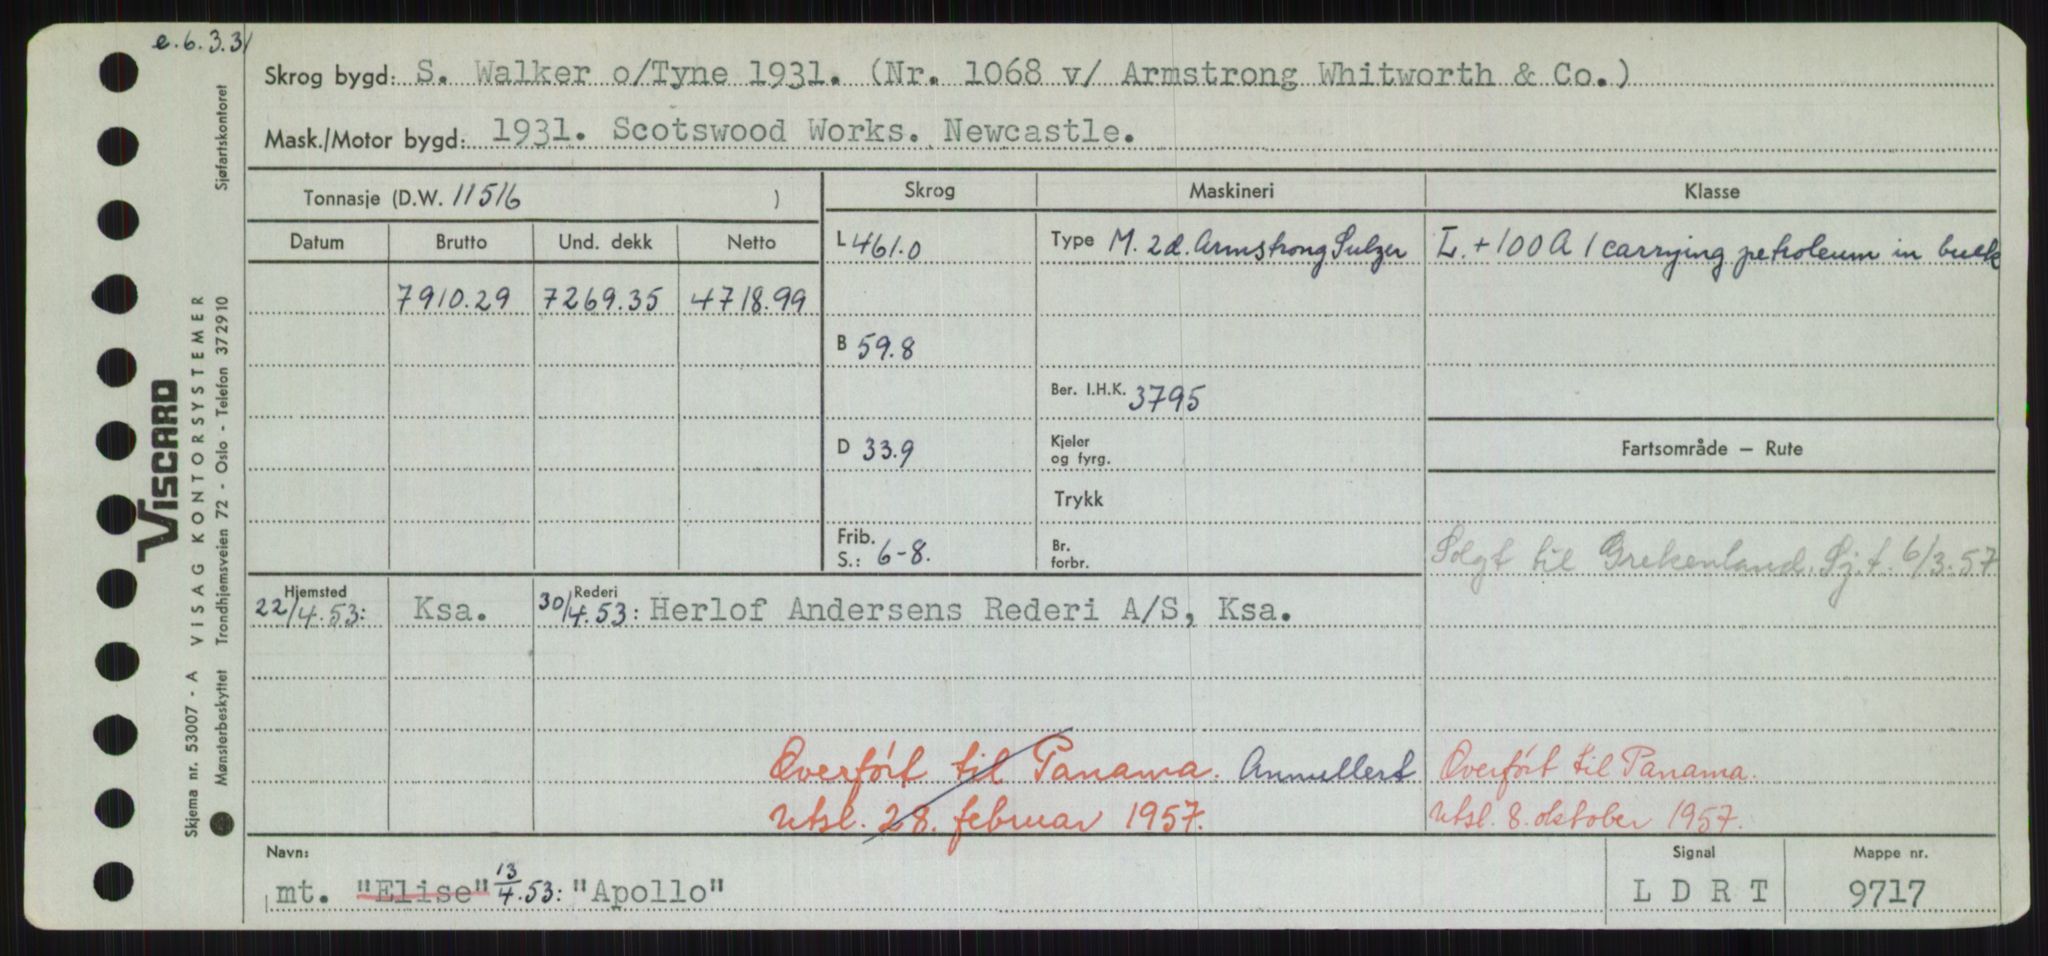 e. 6. 3. 31
Skrog bygd: S. Walker o/Tyne 1931. (Nr. 1068 v/ Armstrong Whitworth & Co.)
Mask./Motor bygd: 1931. Scotswood Works. Newcastle.
Tonnasje (D.W. 11516 )
Datum Brutto Und. dekk Netto
7910.29 7269.35 4718.99
Skrog Maskineri Klasse
L 461.0 Type M. 2d. Armstrong Sulzer L. + 100 A 1 carrying petroleum in bulk
B 59.8
Ber. I.H.K. 3795
D 33.9 Kjeler og fyrg. Fartsområde — Rute
Trykk
Frib. S.: 6-8. Br. forbr. Solgt til Grekenland. Sj.t. 6/3-57
Hjemsted Rederi
22/4.53: Ksa. 30/4.53: Herlof Andersens Rederi A/S, Ksa.
Overført til Panama. Annullert Overført til Panama.
Utsl. 28. februar 1957. Utsl. 8. oktober 1957.
Navn: Signal Mappe nr.
mt. "Elise" 13/4.53: "Apollo" L D R T 9717
VISCARD
VISAG KONTORSYSTEMER
Skjema nr. 53007 - A
Mønsterbeskyttet Trondhjemsveien 72 - Oslo - Telefon 372910 Sjøfartskontoret